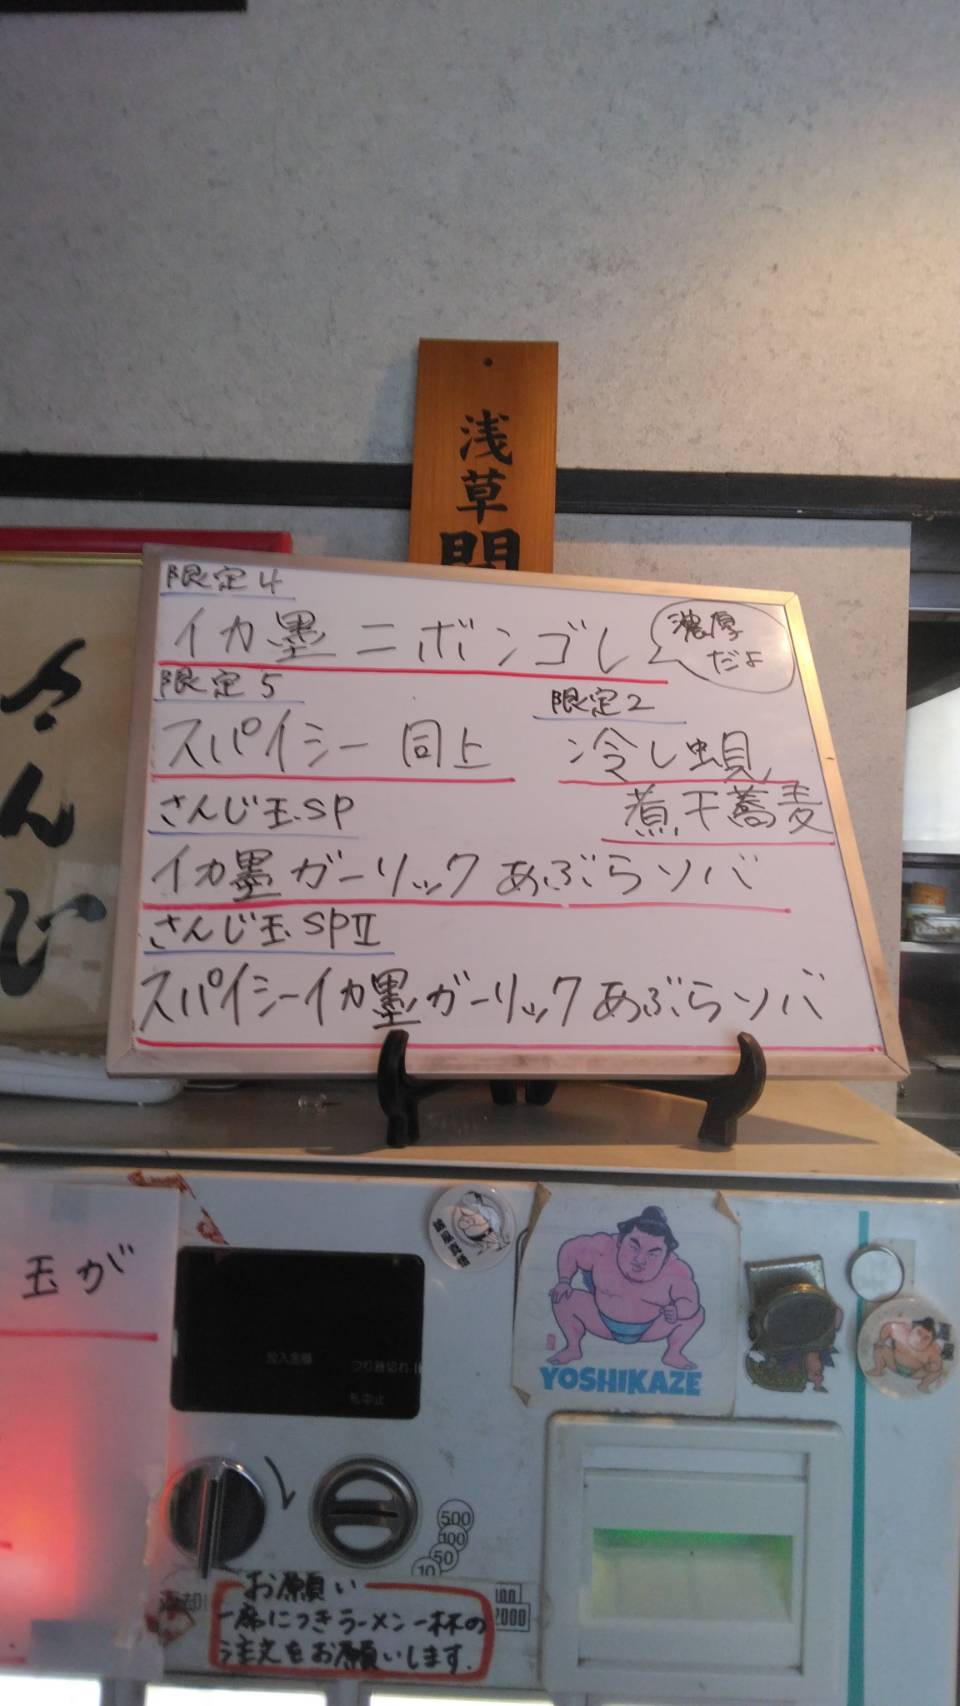 浅草
限定4
イカ墨ニボンゴレ
濃厚
だよ
限定5
スパイシー 同上
限定2
冷し蜆
煮干蕎麦
さんじ玉SP
イカ墨ガーリックあぶらソバ
さんじ玉SPⅡ
スパイシーイカ墨ガーリックあぶらソバ
さんじ
玉が
投入金額
つり銭切れ
札中止
YOSHIKAZE
500
100
50
10
2000
お願い
一席につきラーメン一杯の
注文をお願いします.